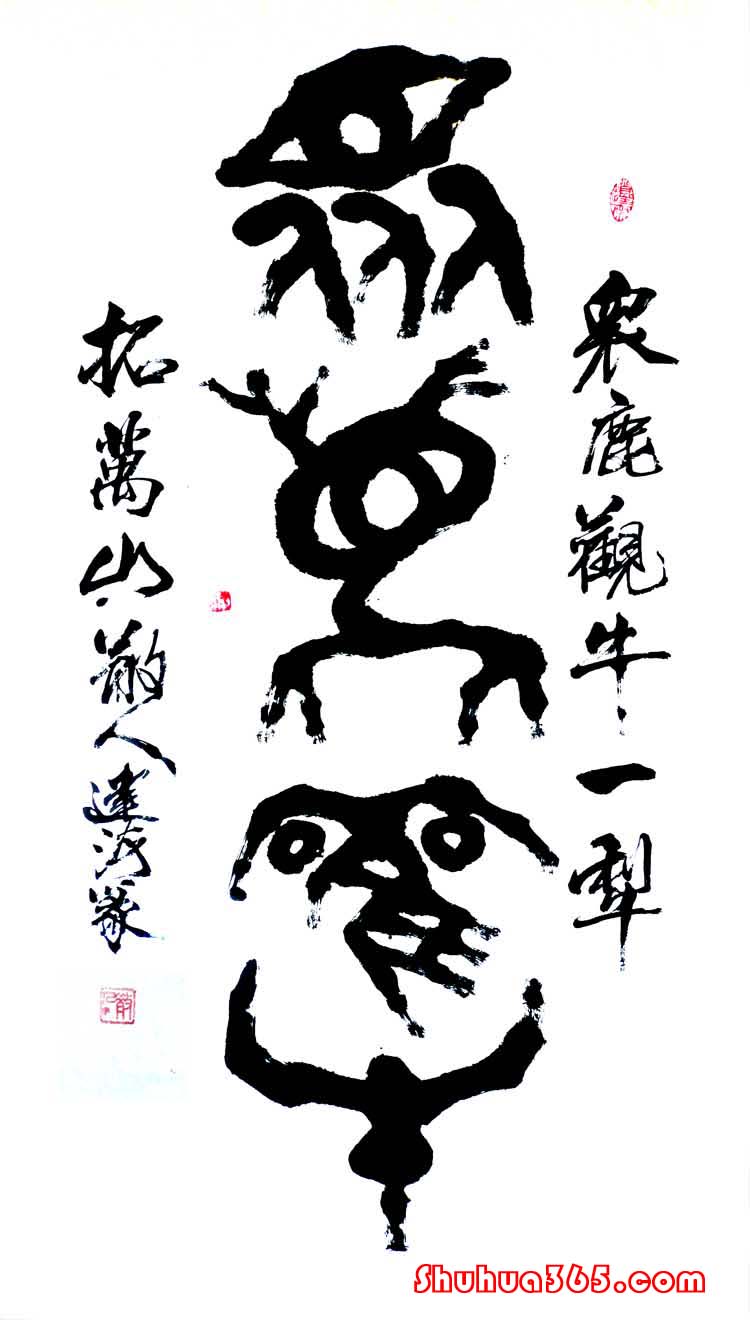 衆鹿觀牛一犁
衆鹿觀牛
拓萬山散人達海篆
Shuhua365.com